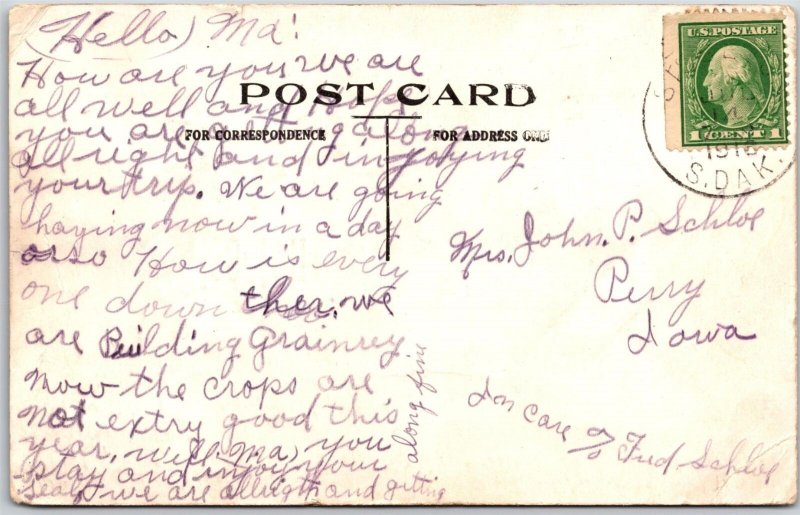 (Hello) Ma!
How are you we are
all well and hope
you are getting along
all right and injoying
your trip. We are going
haying now in a day
or so How is every
one down ther. we
are Building Grainrey
now the crops are
not extry good this
year, well Ma, you
stay and injoy your
we are allright and getting
along fine
POST CARD
FOR CORRESPONDENCE
FOR ADDRESS ONLY
U.S. POSTAGE
1 CENT 1
1916
S.DAK.
Mrs. John. P. Schloe
Perry
Iowa
In Care of Fred Schloe